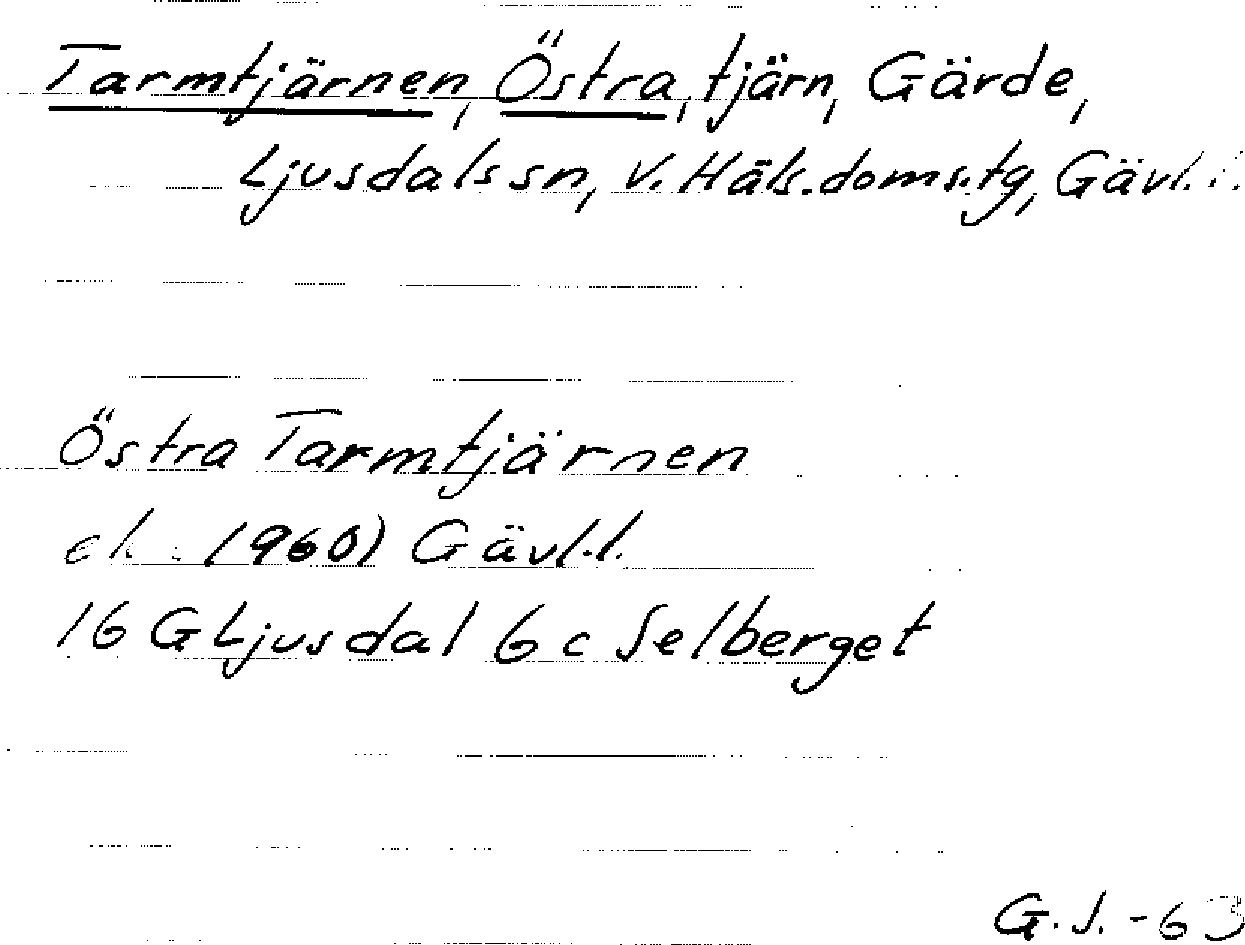 Tarmtjärnen, Östra, tjärn, Gärde,
Ljusdals sn, V. Häls. doms.tg, Gävl. l.
Östra Tarmtjärnen
ek. (1960) Gävl.l.
16 G Ljusdal 6 c Selberget
G.J. -63